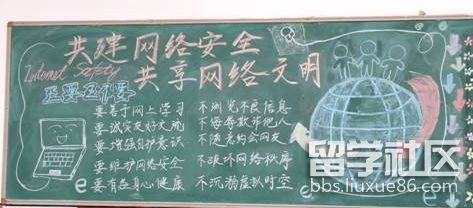 共建网络安全
Internet Safety 共享网络文明
五要五不要
要善于网上学习 不浏览不良信息
要诚实友好交流 不侮辱欺诈他人
要增强自护意识 不随意约会网友
要维护网络安全 不破坏网络秩序
要有益身心健康 不沉溺虚拟时空
e
e
e
留学社区
bbs.liuxue86.com